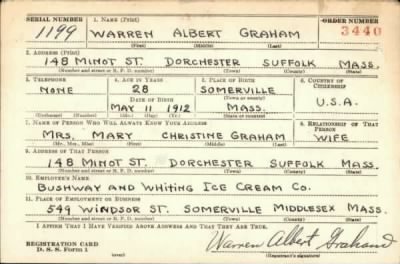 SERIAL NUMBER 1. NAME (Print) ORDER NUMBER
1199 WARREN ALBERT GRAHAM 3440
(First) (Middle) (Last)
2. ADDRESS (Print)
148 MINOT ST. DORCHESTER SUFFOLK MASS.
(Number and street or R. F. D. number) (Town) (County) (State)
3. TELEPHONE 4. AGE IN YEARS 5. PLACE OF BIRTH 6. COUNTRY OF CITIZENSHIP
NONE 28 SOMERVILLE
DATE OF BIRTH (Town or county)
MAY 11 1912 MASS. U.S.A.
(Exchange) (Number) (Mo.) (Day) (Yr.) (State or country)
7. NAME OF PERSON WHO WILL ALWAYS KNOW YOUR ADDRESS 8. RELATIONSHIP OF THAT PERSON
MRS. MARY CHRISTINE GRAHAM WIFE
(Mr., Mrs., Miss) (First) (Middle) (Last)
9. ADDRESS OF THAT PERSON
148 MINOT ST. DORCHESTER SUFFOLK MASS.
(Number and street or R. F. D. number) (Town) (County) (State)
10. EMPLOYER'S NAME
BUSHWAY AND WHITING ICE CREAM CO.
11. PLACE OF EMPLOYMENT OR BUSINESS
549 WINDSOR ST. SOMERVILLE MIDDLESEX MASS.
(Number and street or R. F. D. number) (Town) (County) (State)
I AFFIRM THAT I HAVE VERIFIED ABOVE ANSWERS AND THAT THEY ARE TRUE.
REGISTRATION CARD
D. S. S. Form 1
Warren Albert Graham
(Registrant's signature)